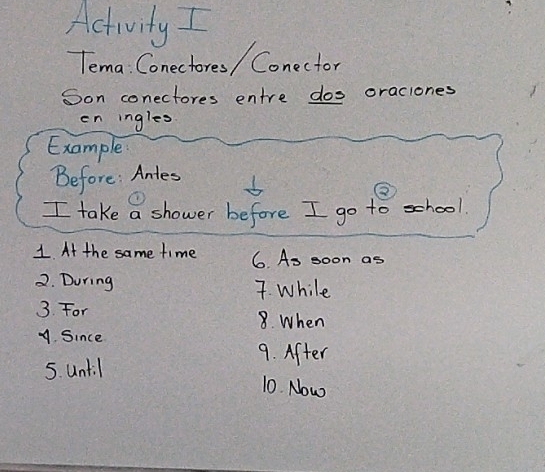 Activity I
Tema: Conectores/Conector
Son conectores entre dos oraciones
en ingles.
Example:
Before: Antes
① ②
I take a shower before I go to school.
1. At the same time
2. During
3. For
4. Since
5. Until
6. As soon as
7. While
8. When
9. After
10. Now